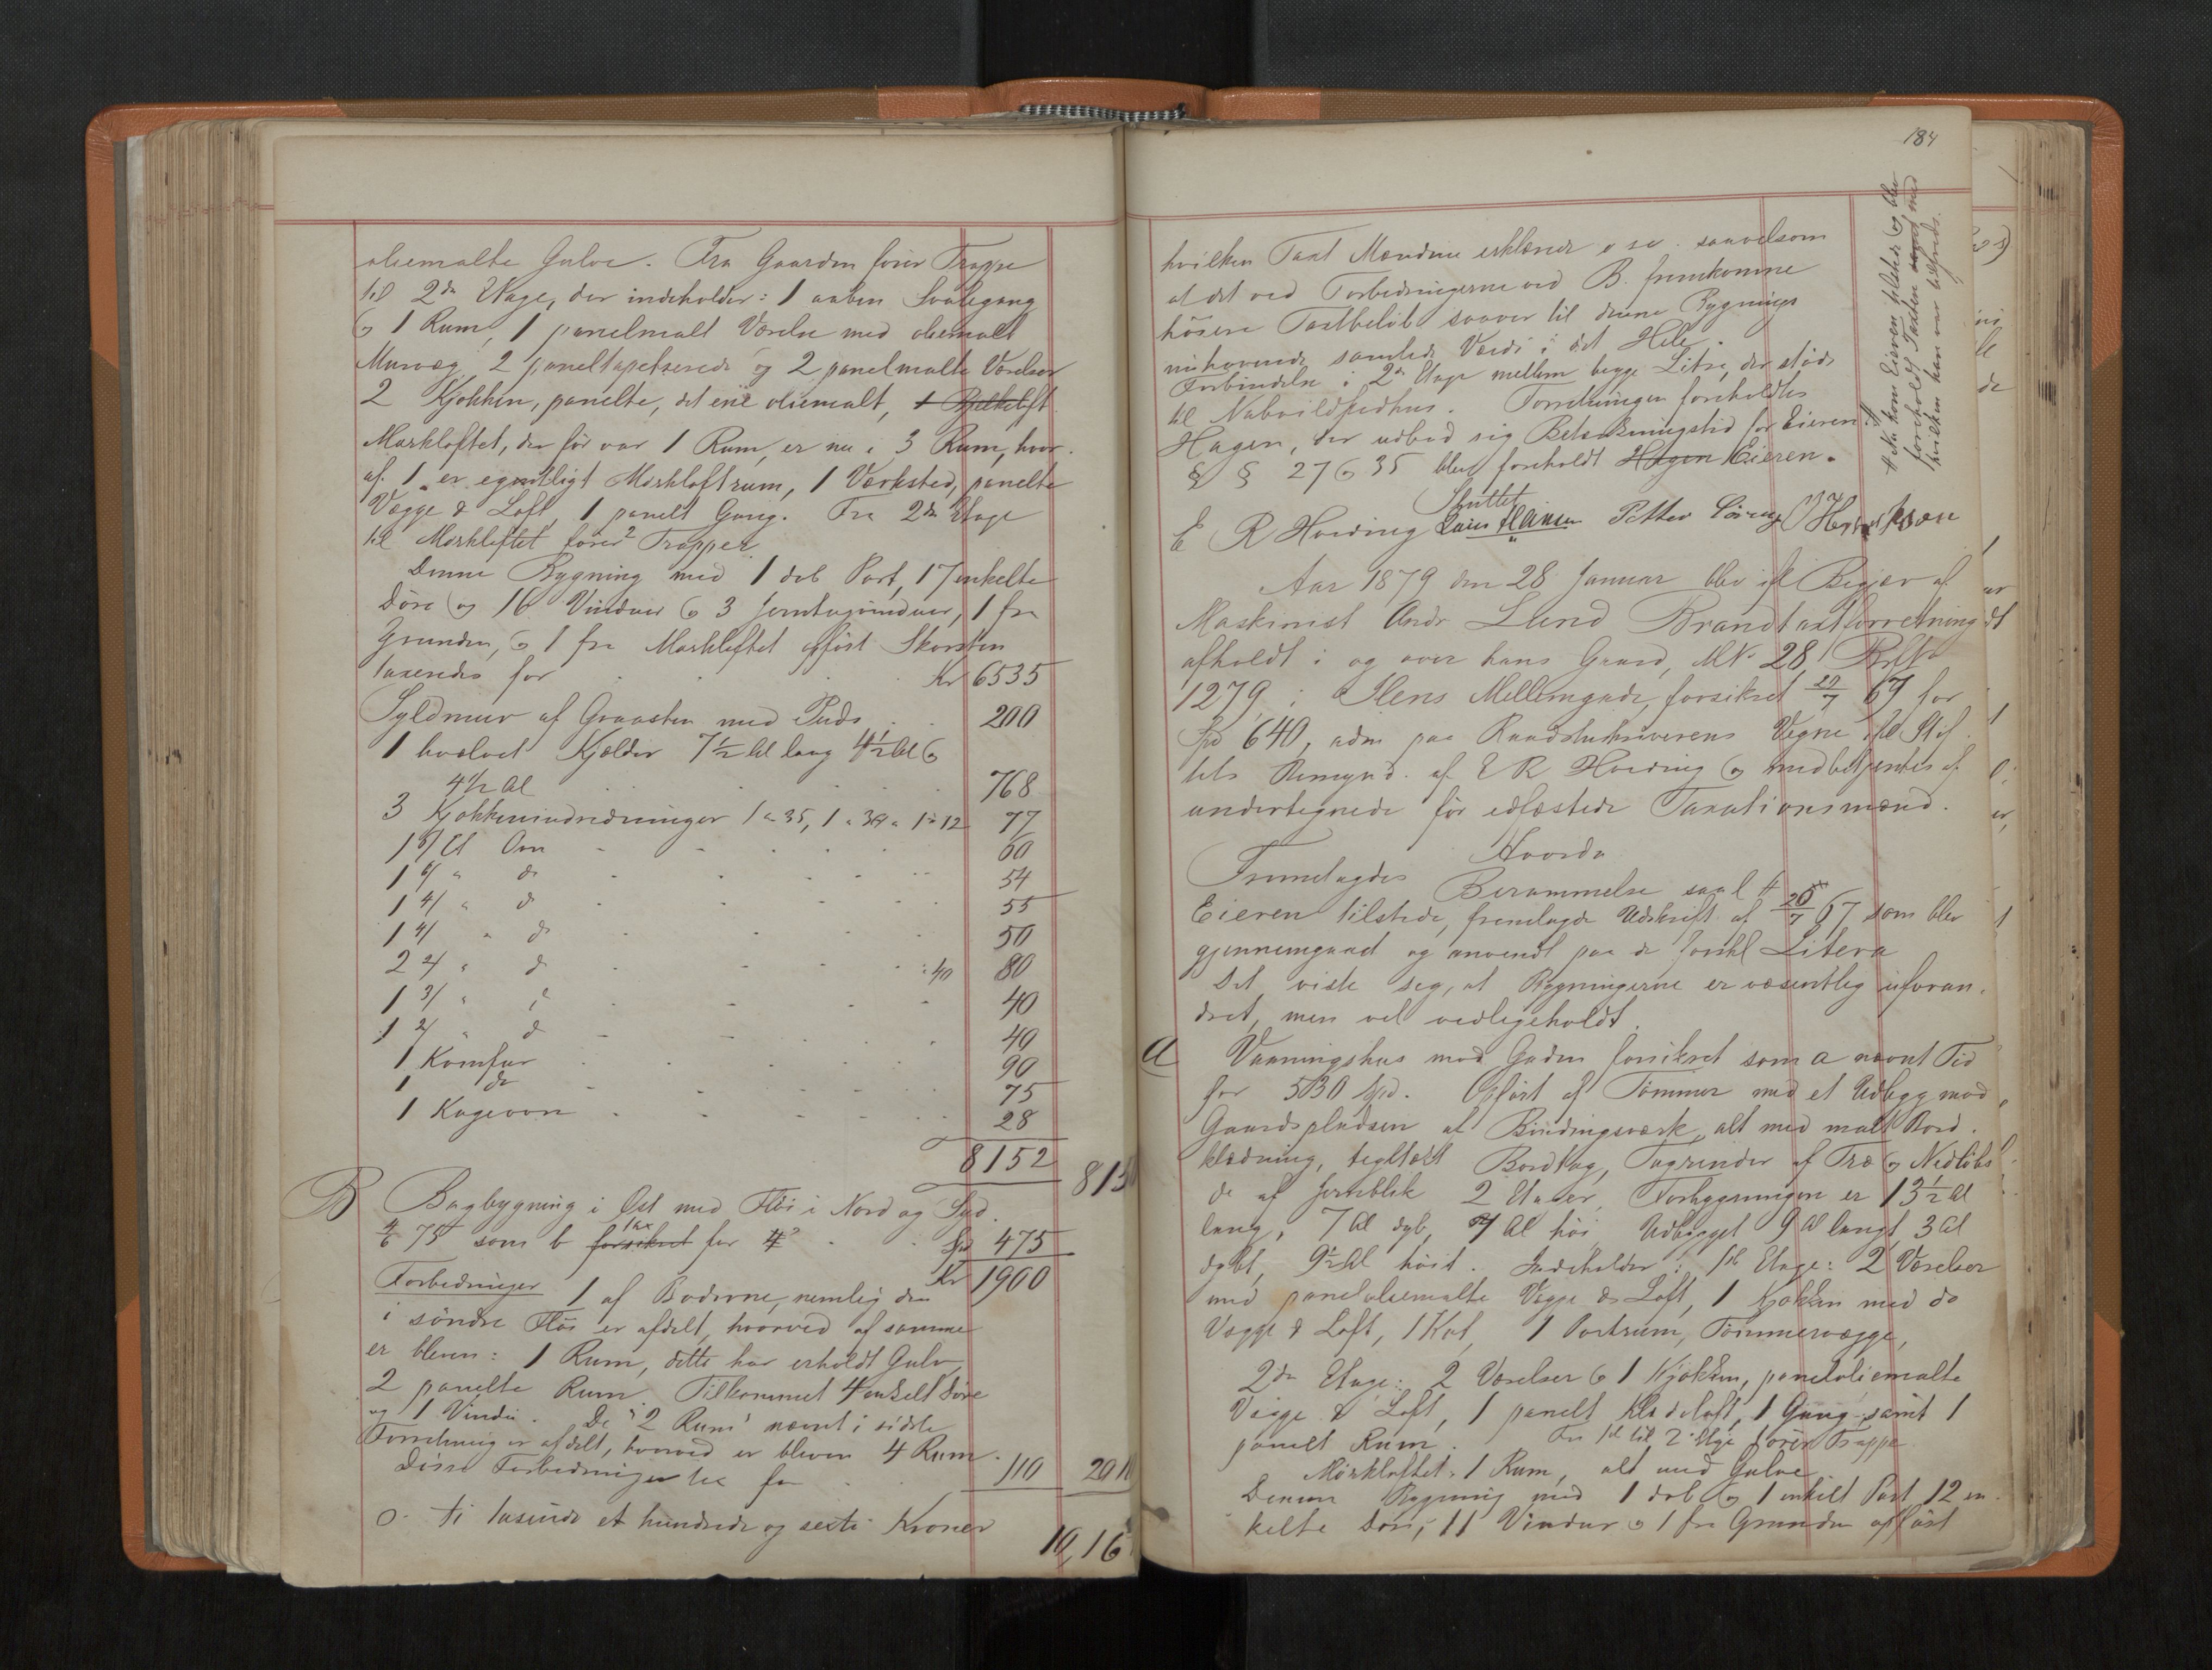 oliemalte Gulve. Fra Gaarden fører Trappe
til 2den Etage, der indeholder: 1 aaben Svalegang
og 1 Rum, 1 panelmalt Værelse med oliemalt
Murvæg, 2 paneltapetserede og 2 panelmalte Værelser
2 Kjøkken, panelte, det ene oliemalt, 1
Mørkloftet, der før var 1 Rum, er nu i 3 Rum, hvor-
af 1 er egentligt Mørkloftrum, 1 Værksted, panelte
Vægge & Loft, 1 panelt Gang. Fra 2den Etage
til Mørkloftet fører 2 Trapper.
Denne Bygning med 1 dob Port, 17 enkelte
Døre og 16 Vinduer og 3 Jerntagvinduer, 1 fra
Grunden, og 1 fra Mørkloftet opført Skorsten
taxeredes for Kr 6535
Syldmur af Graasten med Puds 200
1 hvælvet Kjælder 7½ Al lang 4½ Al og
4½ Al 768
3 Kjøkkenindredninger 1 a 35, 1 a 30 1 a 12 77
1 6/ Et Ovn 60
1 6/ " do 54
1 4/ " do 55
1 4/ " do 50
2 2/ " do a 40 80
1 3/ " do 40
1 2/ " do 40
1 Komfur 90
1 do 75
1 Kageovn 28
8152 815
B Bagbygning i Øst med Fløi i Nord og Syd.
4/6 75 som b tax forsikret for Spd 475
Kr 1900
Forbedringer 1 af Boderne, nemlig den
i søndre Fløi er afdelt, hvorved af samme
er bleven: 1 Rum, dette har erholdt Gulv,
2 panelte Rum. Tilkommet 4 enkelt Døre
og 1 Vindu. De "2 Rum" nævnt i sidste
Forretning er afdelt, hvorved er bleven 4 Rum.
Disse Forbedringer tax for 110 201
ti tusinde et hundrede og sexti Kroner
10,16
184
hvilken Taxt Mændene erklærede saavelsom
at det ved Forbedringerne ved B. fremkomne
høiere Taxtbeløb svarer til denne Bygnings
nuhavende samlede Værdi i det Hele.
Forbindelse i 2den Etage mellem begge Litra, der støde
til Naboildstedhus. Forretningen foreholdtes
Hagen, der udbad sig Betænkningstid for Eieren #
§ § 27 og 35 blev foreholdt Hagen Eieren.
# Nu kom Eieren tilstede og blev
foreholdt Taxten med
hvilken han var tilfreds.
Sluttet
E R Hoeding Lars Hansen Petter Henriksen
Aar 1879 den 28 Januar blev ifl Begjær af
Maskinist Andr Lund Brandtaxtforretning
afholdt i og over hans Gaard, M No 281
1279, i Ilens Mellemgade, forsikret 29/7 67 for
Spd 640, adm paa Raadstueskriverens Vegne ifl Stif-
tets Bemynd. af E R Hoeding og medbetjentes af
undertegnede før edfæstede Taxationsmænd.
Hvorda
Fremlagdes Berammelse saal #
Eieren tilstede, fremlagde Udskrift af 29/7 67 som blev
gjennemgaaet og anvendt paa de forskl Litera
Det viste sig, at Bygningerne er væsentlig uforan-
dret, men vel vedligeholdt.
A Vaaningshus mod Gaden forsikret som a nævnt Tid
for 530 Spd. Opført af Tømmer med et Udbygg mod
Gaardspladsen af Bindingsværk, alt med malt Bord-
klædning, tegltækt Bordtag, Tagrender af Træ og Nedløbs
do af Jernblik 2 Etager, Forbygningen er 13½ Al
lang, 7 Al dyb, 9 Al høi Udbygget 9 Al langt, 3 Al
dybt, 9½ Al høit. Indeholder: 1ste Etage: 2 Værelser
med paneloliemalte Vægge & Loft, 1 Kjøkken med do
Vægge & Loft, 1 Kot, 1 Portrum, Tømmervægge,
2den Etage: 2 Værelser og 1 Kjøkken, paneloliemalte
Vægge & Loft, 1 panelt Klædeloft, 1 Gang, samt 1
panelt Rum. Fra 1ste til 2den Etge fører Trappe
Mørkloftet, 1 Rum, alt med Gulve
Denne Bygning med 1 dob og 1 enkelt Port 12 en-
kelte Døre, 11 Vinduer og 1 fra Grunden opført